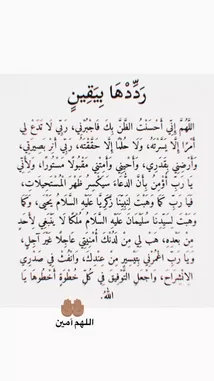 رَدِّدْهَا بِيَقِينٍ
اللَّهُمَّ إِنِّي أَحْسَنْتُ الظَّنَّ بِكَ فَاجْبُرْنِي، رَبِّي لَا تَدَعْ لِي
أَمْرًا إِلَّا يَسَّرْتَهُ، وَلَا حُلْمًا إِلَّا حَقَّقْتَهُ، رَبِّي أَنِرْ بَصِيرَتِي،
وَأَرْضِنِي بِقَدَرِي، وَأَحْيِنِي وَأَمِتْنِي مَقْبُولًا مَسْتُورًا، وَلِأَنِّي
يَا رَبِّ أُؤْمِنُ بِأَنَّ الدُّعَاءَ سَيَكْسِرُ ظَهْرَ الْمُسْتَحِيلَاتِ،
فَيَا رَبِّ كَمَا وَهَبْتَ لِنَبِيِّنَا زَكَرِيَّا عَلَيْهِ السَّلَامُ يَحْيَى، وَكَمَا
وَهَبْتَ لِسَيِّدِنَا سُلَيْمَانَ عَلَيْهِ السَّلَامُ مُلْكًا لَا يَنْبَغِي لِأَحَدٍ
مِنْ بَعْدِهِ، هَبْ لِي مِنْ لَدُنْكَ أُمْنِيَتِي عَاجِلًا غَيْرَ آجِلٍ،
وَيَا رَبِّ اغْمُرْنِي بِتَيْسِيرٍ مِنْ عِنْدِكَ، وَانْفُثْ فِي صَدْرِي
الِانْشِرَاحَ، وَاجْعَلِ التَّوْفِيقَ فِي كُلِّ خُطْوَةٍ أَخْطُوهَا يَا
اللهُ.
اللهم آمين